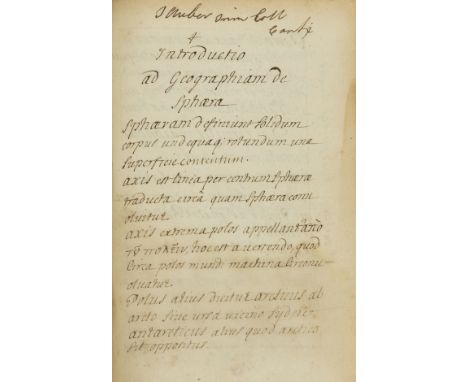 J Huber Trin Coll
Cantb
Introductio
ad Geographiam de
Sphæra
Sphæram definiunt solidum
corpus undequaq; rotundum una
superficie contentum.
axis est linea per centrum sphæræ
traducta circa quam sphæra conv
oluitur
axis extrema polos appellant ἀπὸ
τȣ͂ πολεῖν, hoc est a verrendo, quod
circa polos mundi machina circonv
oluatur
Polus alius dicitur arcticus ab
arcto sive ursa vicino sydere,
antarcticus alius quod arctico
sit oppositus.